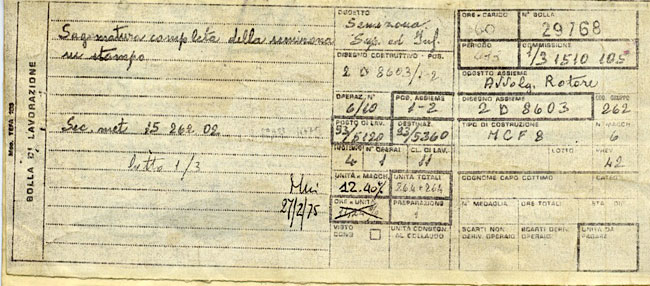 Mod. TEFA
BOLLA DI LAVORAZIONE
Sagomatura completa della
su stampo
Sec. met. 15 262.02
lotto 1/3
27/2/75
OGGETTO
Sup. ed Inf.
DISEGNO COSTRUTTIVO - POS.
2 D 8603/1-2
OPERAZ. N°
6/10
POS. ASSIEME
1-2
POSTO DI LAV.
93/5120
DESTINAZ.
93/5360
N° OPERAI
4 1
CL. DI LAV.
11
UNITÀ e MACCH.
12.40%
UNITÀ TOTALI
264+264
ORE e UNITÀ
PREPARAZIONE
1
VISTO
CONG
UNITÀ CONSEGN.
AL COLLAUDO
ORE A CARICO
60
N° BOLLA
29768
PERIODO
COMMISSIONE
1/3 1510 105
OGGETTO ASSIEME
Avvolg. Rotore
DISEGNO ASSIEME
2 D 8603
COD. GRUPPO
262
TIPO DI COSTRUZIONE
MCF8
N° MACCH
6
LOTTO
PREV
42
COGNOME CAPO COTTIMO
N° MEDAGLIA
ORE TOTALI
STA
SCARTI NON
DERIV. OPERAIO
SCARTI DERIV.
OPERAIO
UNITÀ DA
PAGARE